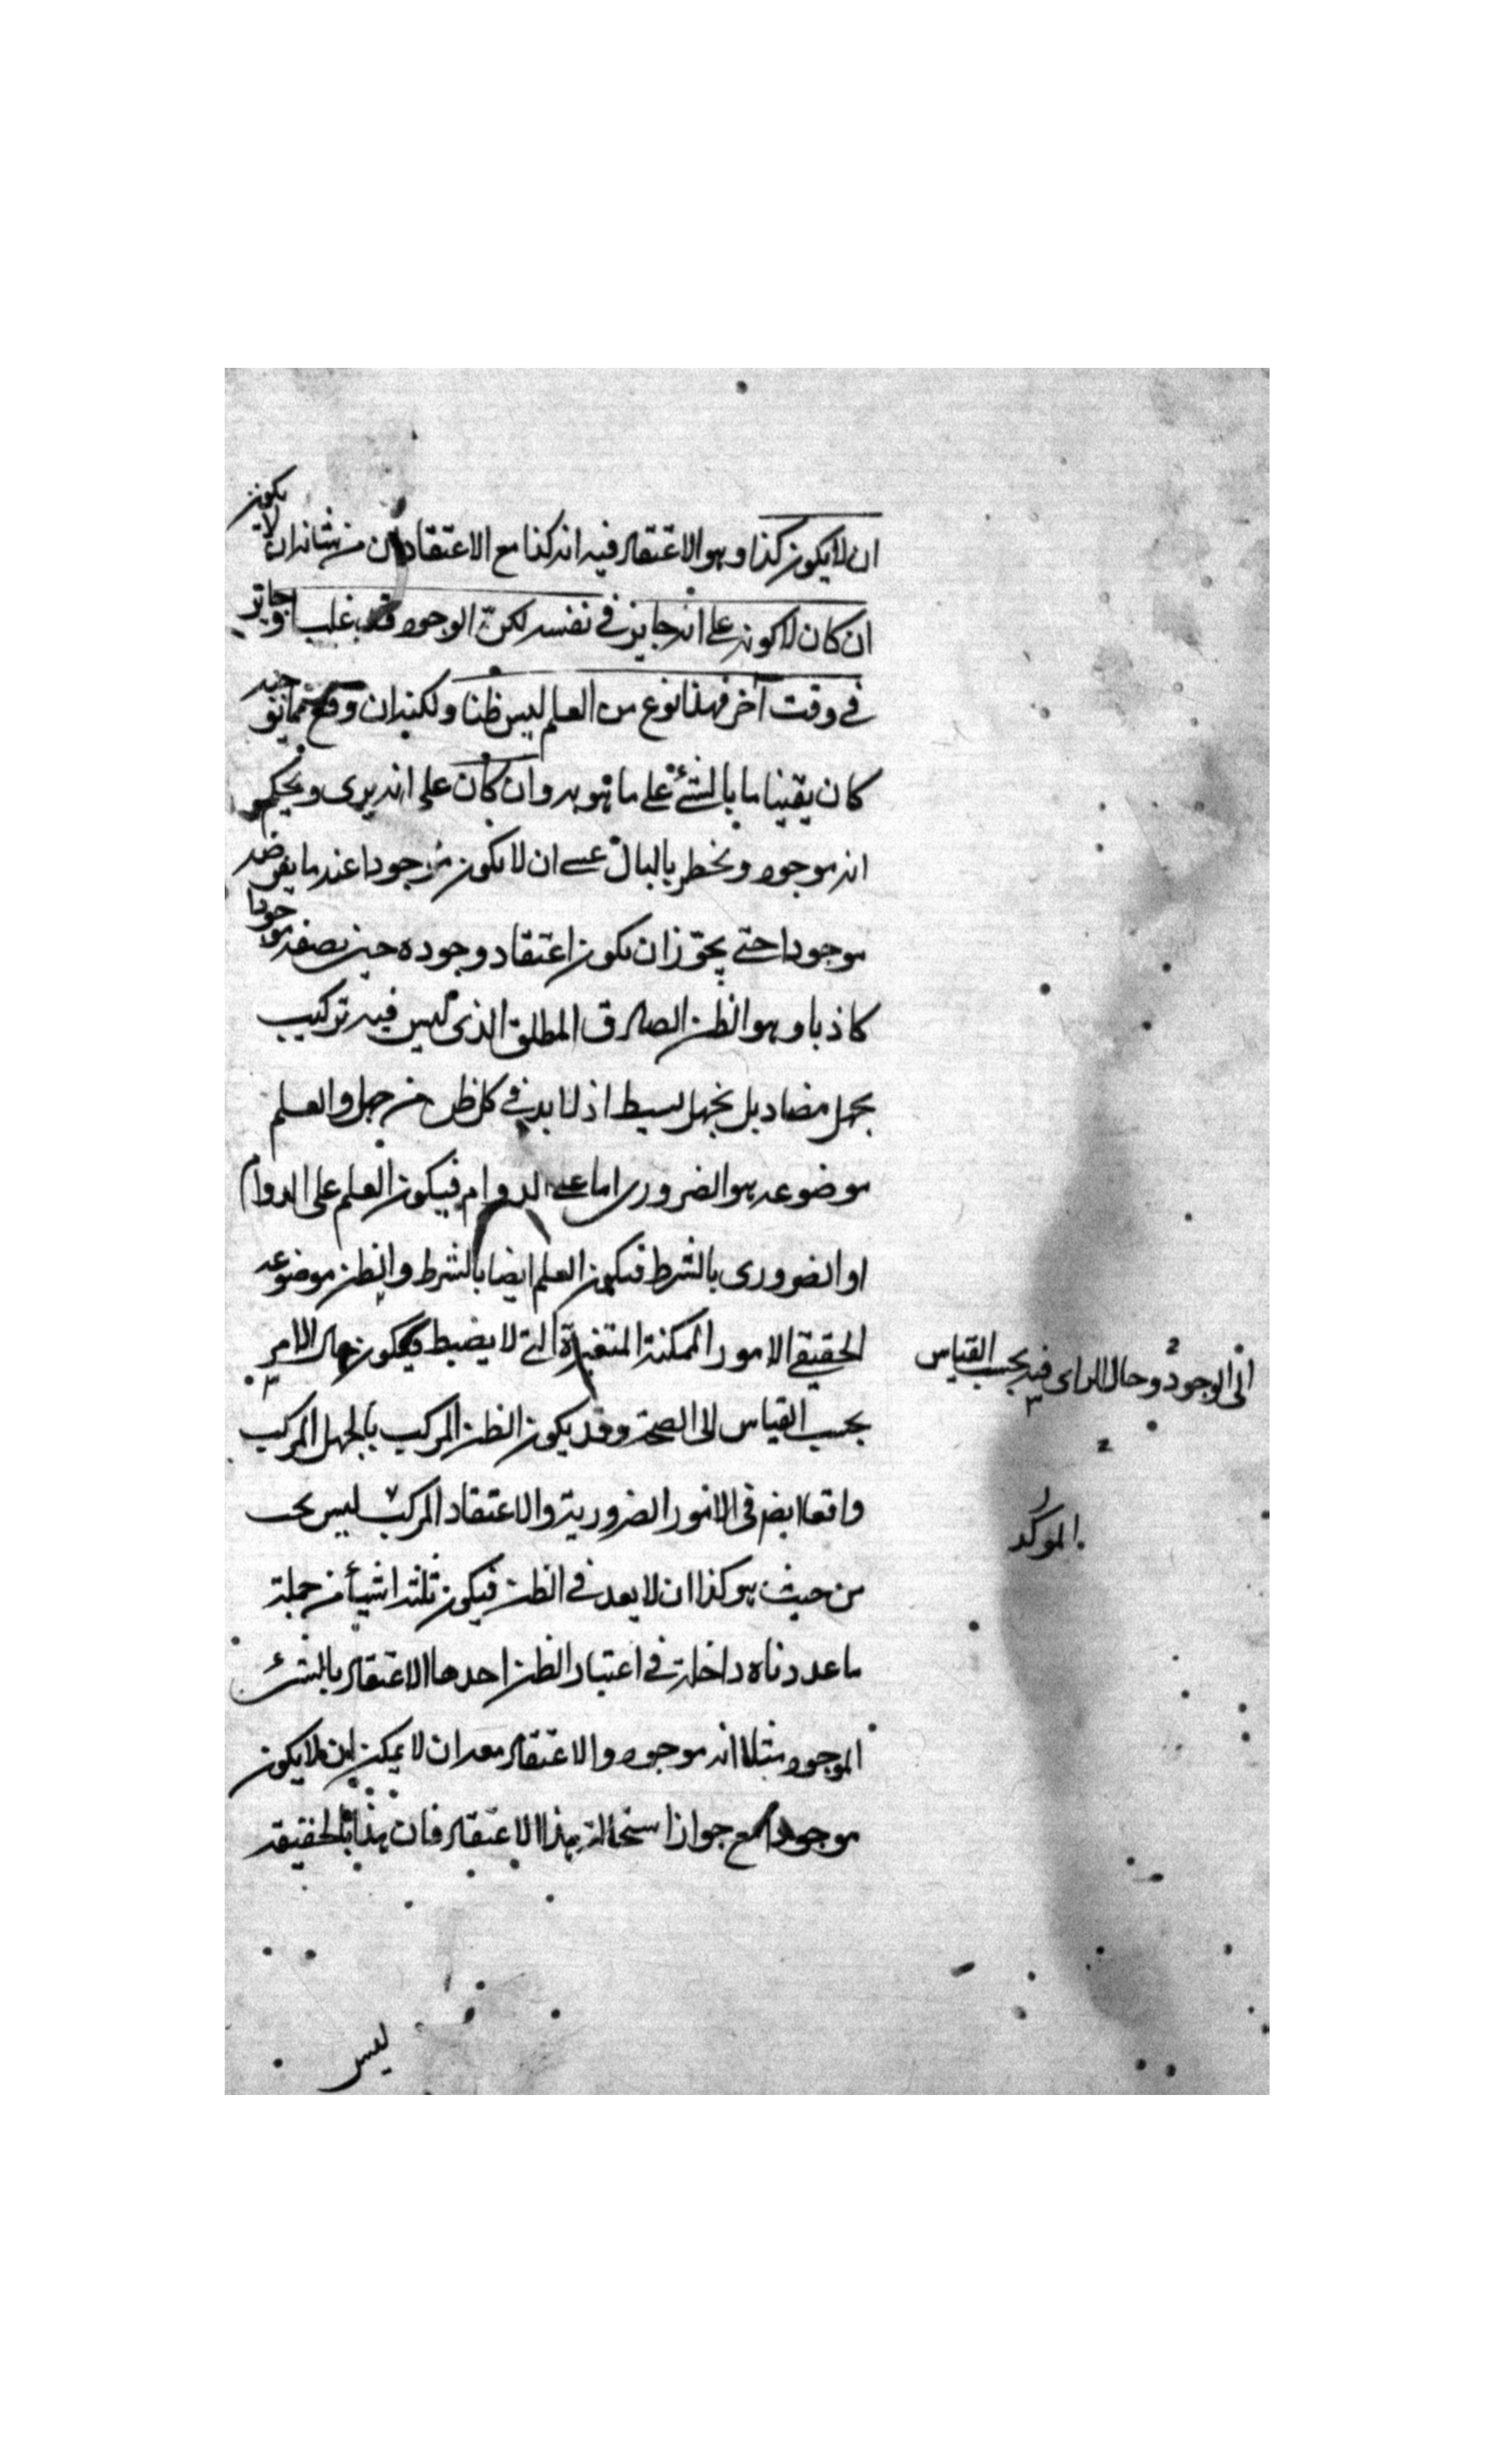 ان لا يكون كذا وهو الاعتقاد فيه انه كذا مع الاعتقاد ان من شانه ان لا يكون
ان كان لا كونه على انه جايز في نفسه لكنّ الوجود قد غلب وجايز
في وقت آخر فهذا نوع من العلم ليس ظنا ولكنه ان وقع
كان يقينا ما بالشئ على ما هو به وان كان على انه يرى ويحكم
انه موجود ويخطر بالبال عسى ان لا يكون موجودا عند ما يفرضه
موجودا حتى يجوّز ان يكون اعتقاد وجوده حين يصفه موجودا
كاذبا وهو الظن الصادق المطلق الذى ليس فيه تركيب
بجهل مضاد بل بجهل بسيط اذ لا بد في كل ظن من جهل والعلم
موضوعه هو الضرورى اما على الدوام فيكون العلم على الدوام
او الضرورى بالشرط فيكون العلم ايضا بالشرط والظن موضوعه
الحقيقي الامور الممكنة المتغيرة التي لا يضبط فيكون حال الامر
الى الوجود وحال الراى فيه بحسب القياس
بحسب القياس الى الصحة وقد يكون الظن المركب بالجهل المركب
واقعا ايضا في الامور الضرورية والاعتقاد المركب ليس يجب
الموكد
من حيث هو كذا ان لا يعد في الظن فيكون ثلثه اشيأ من جملة
ما عددناه داخلة في اعتبار الظن احدها الاعتقاد بالشئ
الموجود مثلا انه موجود والاعتقاد معه ان لا يمكن ان لا يكون
موجودا مع جواز استحالة هذا الاعتقاد فان هذا بالحقيقه
ليس